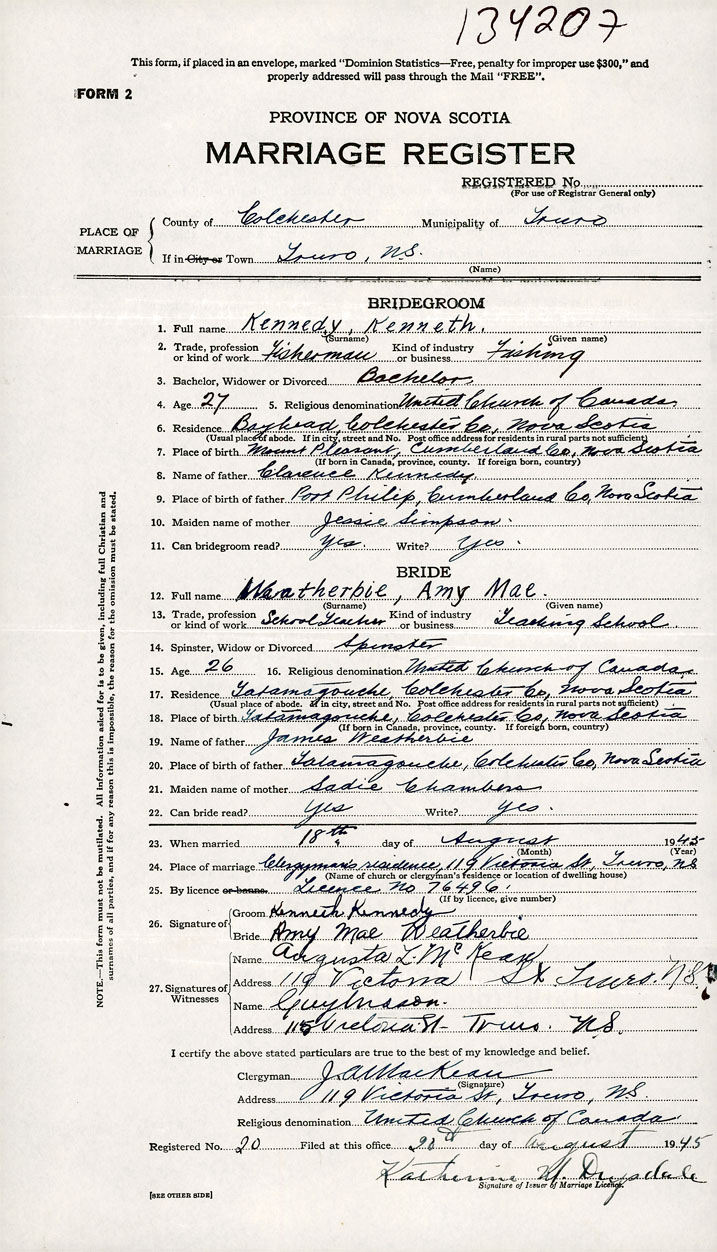 134207
This form, if placed in an envelope, marked "Dominion Statistics—Free, penalty for improper use $300," and
properly addressed will pass through the Mail "FREE".
FORM 2
PROVINCE OF NOVA SCOTIA
MARRIAGE REGISTER
REGISTERED No
(For use of Registrar General only)
PLACE OF MARRIAGE
County of Colchester Municipality of Truro
If in City or Town Truro, N.S.
(Name)
BRIDEGROOM
1. Full name Kennedy, Kenneth.
(Surname) (Given name)
2. Trade, profession or kind of work Fisherman Kind of industry or business Fishing
3. Bachelor, Widower or Divorced Bachelor
4. Age 27 5. Religious denomination United Church of Canada
6. Residence Bayhead, Colchester Co, Nova Scotia
(Usual place of abode. If in city, street and No. Post office address for residents in rural parts not sufficient)
7. Place of birth Mount Pleasant, Cumberland Co, Nova Scotia
(If born in Canada, province, county. If foreign born, country)
8. Name of father Clarence Kennedy
9. Place of birth of father Port Philip, Cumberland Co, Nova Scotia
10. Maiden name of mother Jessie Simpson
11. Can bridegroom read? Yes Write? Yes.
BRIDE
12. Full name Weatherbie, Amy Mae.
(Surname) (Given name)
13. Trade, profession or kind of work School Teacher Kind of industry or business Teaching School
14. Spinster, Widow or Divorced Spinster
15. Age 26 16. Religious denomination United Church of Canada
17. Residence Tatamagouche, Colchester Co, Nova Scotia
(Usual place of abode. If in city, street and No. Post office address for residents in rural parts not sufficient)
18. Place of birth Tatamagouche, Colchester Co, Nova Scotia
(If born in Canada, province, county. If foreign born, country)
19. Name of father James Weatherbie
20. Place of birth of father Tatamagouche, Colchester Co, Nova Scotia
21. Maiden name of mother Sadie Chambers
22. Can bride read? Yes Write? Yes.
23. When married 18th day of August 1945
(Month) (Year)
24. Place of marriage Clergyman's residence, 119 Victoria St, Truro, NS
(Name of church or clergyman's residence or location of dwelling house)
25. By licence or banns Licence No 76496
(If by licence, give number)
26. Signature of
Groom Kenneth Kennedy
Bride Amy Mae Weatherbie
27. Signatures of Witnesses
Name Augusta L. McKean
Address 119 Victoria St Truro. N.S.
Name Guy
Address Victoria St Truro. N.S.
I certify the above stated particulars are true to the best of my knowledge and belief.
Clergyman J. A. MacKean
(Signature)
Address 119 Victoria St, Truro, NS.
Religious denomination United Church of Canada
Registered No. 20 Filed at this office 20th day of August 1945
Katherine M. Drysdale
Signature of Issuer of Marriage Licence.
[SEE OTHER SIDE]
NOTE.—This form must not be mutilated. All information asked for is to be given, including full Christian and
surnames of all parties, and if for any reason this is impossible, the reason for the omission must be stated.